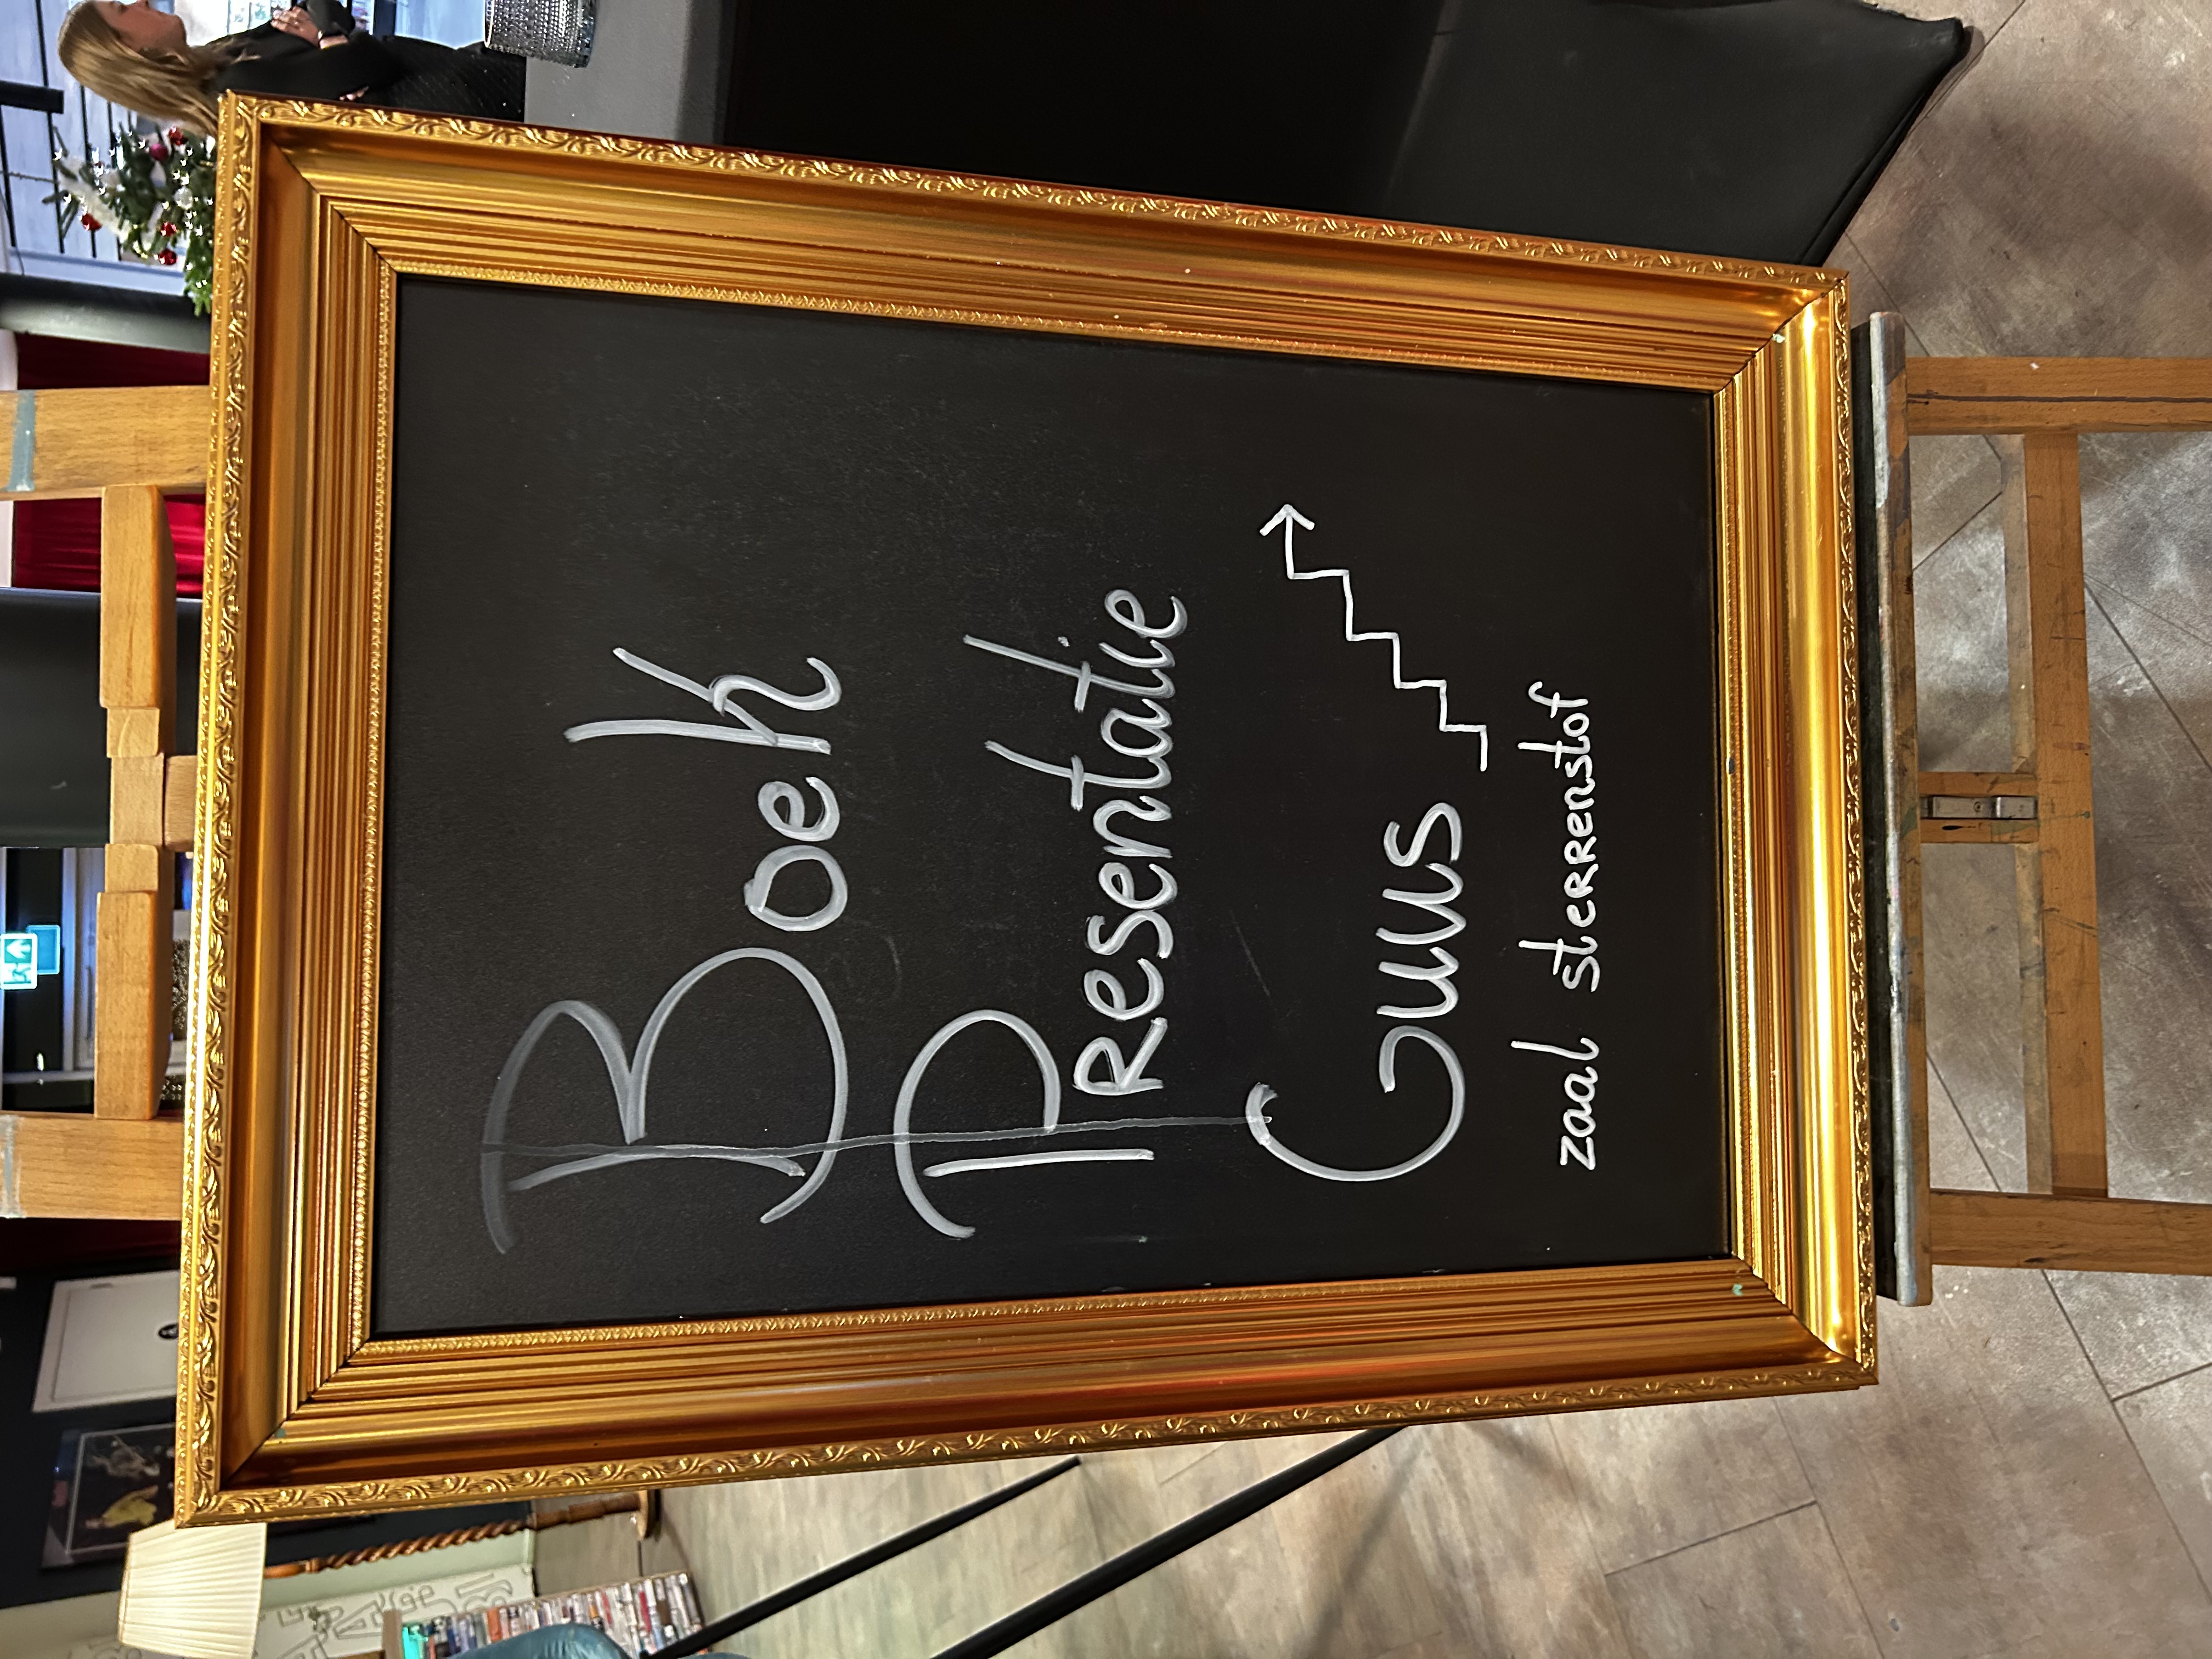 Boek
Presentatie
Guus
zaal sterrenstof